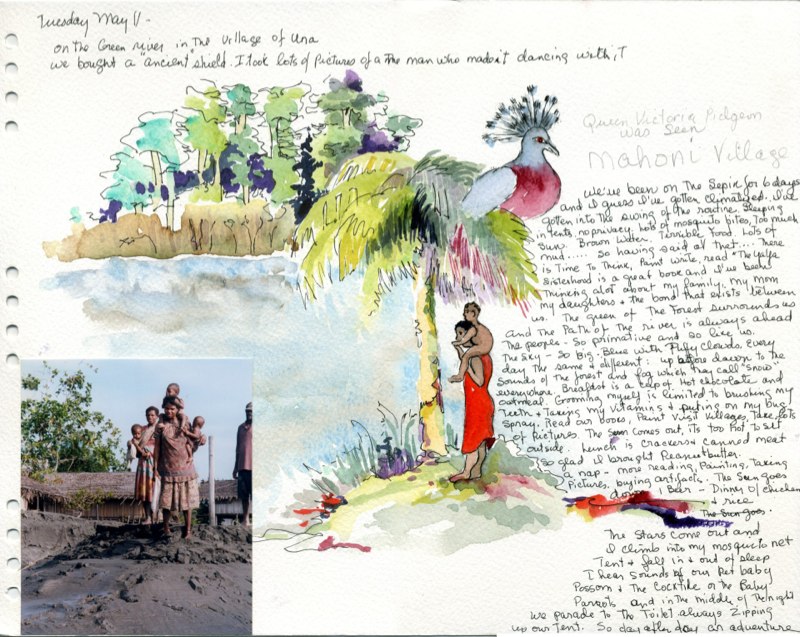 Tuesday May 11 -
on the Green river in "the Village of Una
we bought a "ancient" shield. I took lots of pictures of a the man who made it dancing with it
Queen Victoria Pidgeon
was seen
Mahoni Village
We've been on The Sepik for 6 days
and I guess I've gotten climatized. I've
gotten into the swing of the routine. Sleeping
in tents, no privacy, lots of mosquito bites, Too much
Sun. Brown Water. Terrible Food. Lots of
mud..... So having said all that.... There
is Time To Think, Paint Write, read "The YaYa
Sisterhood is a great book and I've been
Thinking alot about my family. My mom
my daughters + the bond that exists between
us. The green of The Forest surrounds us
and The Path of The river is always ahead
The people - So primative and so like us.
The Sky - So Big - Blue with Puffy Clouds. Every
day The same + different. up before dawn to the
Sounds of the forest and fog which they call "snow"
everywhere. Breakfast is a cup of Hot chocolate and
oatmeal. Grooming myself is limited to brushing my
Teeth + Taking my vitamins + putting on my bug
Spray. Read our books, Paint Visit Villages, Take lots
of Pictures. The Sun comes out, its too Hot to sit
outside. Lunch is crackers + canned meat
So glad I brought Peanut butter.
a nap - more reading, Painting, Taking
Pictures, buying artifacts. The Sun goes
down 1 Beer - Dinner of chicken
+ rice
The Sun goes.
The Stars come out and
I climb into my mosquito net
Tent + fall in + out of sleep
I hear Sounds of our Pet baby
Possom + The Cocktile or the Baby
Parrots and in the middle of The night
we parade to The Toilet always Zipping
up our Tent. So day after day an adventure